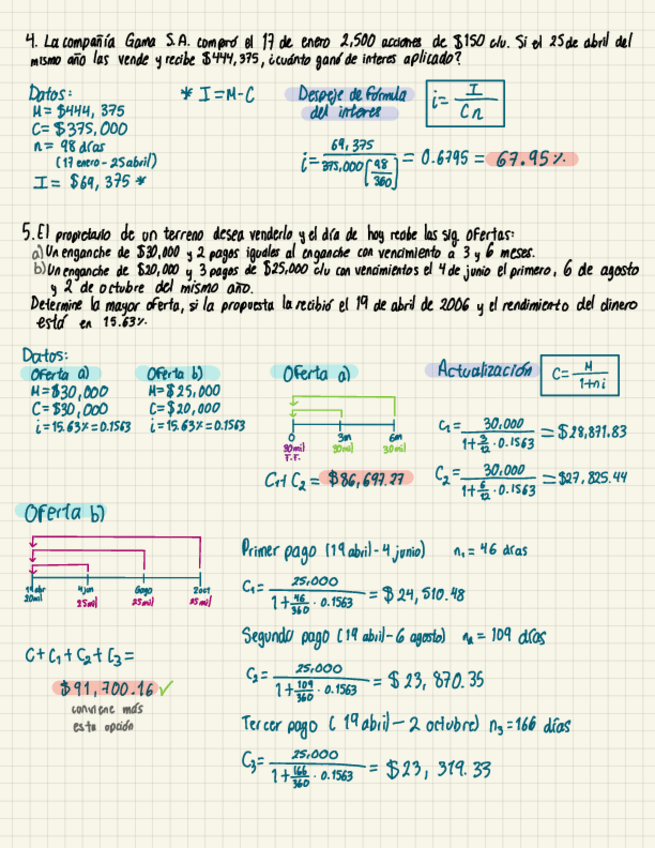 4. La compañía Gama S.A. compró el 17 de enero 2,500 acciones de $150 c/u. Si el 25 de abril del
mismo año las vende y recibe $444,375, ¿cuánto ganó de interes aplicado?
Datos:
M= $444, 375
C= $375,000
n = 98 días
(17 enero - 25 abril)
I = $69, 375 *
* I=M-C
Despeje de fórmula
del interes
i= I / Cn
i= 69,375 / 375,000 [98/360] = 0.6795 = 67.95%
5. El propietario de un terreno desea venderlo y el día de hoy recibe las sig. ofertas:
a) Un enganche de $30,000 y 2 pagos iguales al enganche con vencimiento a 3 y 6 meses.
b) Un enganche de $20,000 y 3 pagos de $25,000 c/u con vencimientos el 4 de junio el primero, 6 de agosto
y 2 de octubre del mismo año.
Determine la mayor oferta, si la propuesta la recibió el 19 de abril de 2006 y el rendimiento del dinero
está en 15.63%.
Datos:
Oferta a)
M=$30,000
C=$30,000
i=15.63%=0.1563
Oferta b)
M=$25,000
C=$20,000
i=15.63%=0.1563
Oferta a)
0 3m 6m
30mil 30mil 30mil
F.F.
C1+ C2 = $86,697.27
Actualización
C= M / 1+ni
C1= 30,000 / 1+ 3/12 · 0.1563 = $28,871.83
C2= 30,000 / 1+ 6/12 · 0.1563 = $27,825.44
Oferta b)
19 abr 4jun 6ago 2oct
20mil 25mil 25mil 25mil
C+C1+C2+C3=
$91,700.16 ✓
conviene más
esta opción
Primer pago (19 abril - 4 junio) n1 = 46 días
C1= 25,000 / 1+ 46/360 · 0.1563 = $24,510.48
Segundo pago (19 abril - 6 agosto) n2 = 109 días
C2= 25,000 / 1+ 109/360 · 0.1563 = $23, 870.35
Tercer pago ( 19 abril - 2 octubre) n3 = 166 días
C3= 25,000 / 1+ 166/360 · 0.1563 = $23, 319.33